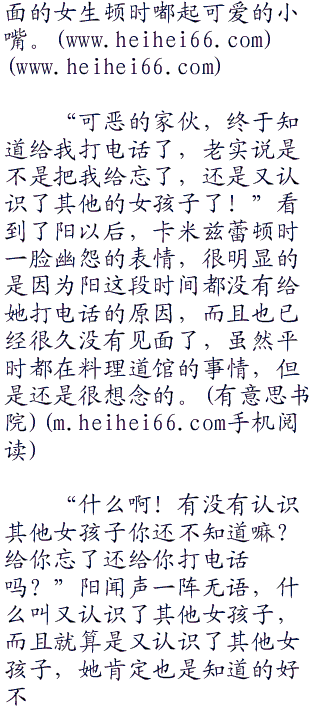 面的女生顿时嘟起可爱的小
嘴。(www.heihei66.com)
(www.heihei66.com)
“可恶的家伙，终于知
道给我打电话了，老实说是
不是把我给忘了，还是又认
识了其他的女孩子了！”看
到了阳以后，卡米兹蕾顿时
一脸幽怨的表情，很明显的
是因为阳这段时间都没有给
她打电话的原因，而且也已
经很久没有见面了，虽然平
时都在料理道馆的事情，但
是还是很想念的。(有意思书
院)(m.heihei66.com手机阅
读)
“什么啊！有没有认识
其他女孩子你还不知道嘛？
给你忘了还给你打电话
吗？”阳闻声一阵无语，什
么叫又认识了其他女孩子，
而且就算是又认识了其他女
孩子，她肯定也是知道的好
不